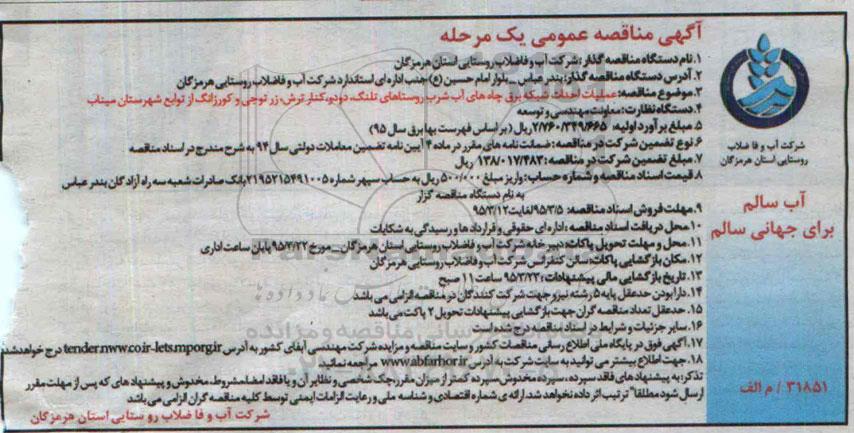 آگهی مناقصه عمومی یک مرحله
۱. نام دستگاه مناقصه گذار: شرکت آب و فاضلاب روستایی استان هرمزگان
۲. آدرس دستگاه مناقصه گذار: بندرعباس _ بلوار امام حسین (ع) جنب اداره ای استاندارد شرکت آب و فاضلاب روستایی هرمزگان
۳. موضوع مناقصه: عملیات احداث شبکه برق چاه های آب شرب روستاهای تلنگ، دودو، کنار ترش، زر توجی و کورزانگ از توابع شهرستان میناب
۴. دستگاه نظارت: معاونت مهندسی و توسعه
۵. مبلغ برآورد اولیه: ۲/۷۶۰/۳۴۹/۶۶۵ ریال (بر اساس فهرست بها برق سال ۹۵)
۶. نوع تضمین شرکت در مناقصه: ضمانت نامه های مقرر در ماده ۴ آیین نامه تضمین معاملات دولتی سال ۹۴ به شرح مندرج در اسناد مناقصه
۷. مبلغ تضمین شرکت در مناقصه: ۱۳۸/۰۱۷/۴۸۳ ریال
۸. قیمت اسناد مناقصه و شماره حساب: واریز مبلغ ۵۰۰/۰۰۰ ریال به حساب سپهر شماره ۲۱۹۵۲۱۵۴۹۱۰۰۵ بانک صادرات شعبه سه راه آزادگان بندر عباس
به نام دستگاه مناقصه گزار
۹. مهلت فروش اسناد مناقصه: ۹۵/۳/۵ لغایت ۹۵/۳/۱۲
۱۰. محل دریافت اسناد مناقصه: اداره ای حقوقی و قرارداد ها و رسیدگی به شکایات
۱۱. محل و مهلت تحویل پاکات: دبیر خانه شرکت آب و فاضلاب روستایی استان هرمزگان _ مورخ ۹۵/۳/۲۲ پایان ساعت اداری
۱۲. مکان بازگشایی پاکات: سالن کنفرانس شرکت آب و فاضلاب روستایی هرمزگان
۱۳. تاریخ بازگشایی مالی پیشنهادات: ۹۵/۳/۲۳ ساعت ۱۱ صبح
۱۴. دارا بودن حداقل پایه ۵ رشته نیرو جهت شرکت کنندگان در مناقصه الزامی می باشد
۱۵. حداقل تعداد مناقصه گران جهت بازگشایی پیشنهادات تحویل ۲ پاکت می باشد
۱۶. سایر جزئیات و شرایط در اسناد مناقصه درج شده است
۱۷. آگهی فوق در پایگاه ملی اطلاع رسانی مناقصات کشور و سایت مناقصه و مزایده شرکت مهندسی آبفای کشور به آدرس tender.nww.co.ir-Iets.mporg.ir درج خواهد شد
۱۸. جهت اطلاع بیشتر می توانید به سایت شرکت به آدرس www.abfarhor.ir مراجعه نمائید
تذکر: به پیشنهاد های فاقد سپرده، سپرده مخدوش، سپرده کمتر از میزان مقرر، چک شخصی و نظایر آن و یا فاقد امضا، مشروط، مخدوش و پیشنهاد های که پس از مهلت مقرر
ارسال شود مطلقا" ترتیب اثر داده نخواهد شد. ارائه ی شماره اقتصادی و شناسه ملی و رعایت الزامات ایمنی توسط کلیه مناقصه گران الزامی می باشد
شرکت آب و فاضلاب روستایی استان هرمزگان
شرکت آب و فاضلاب
روستایی استان هرمزگان
آب سالم
برای جهانی سالم
۳۱۸۵۱ / م الف